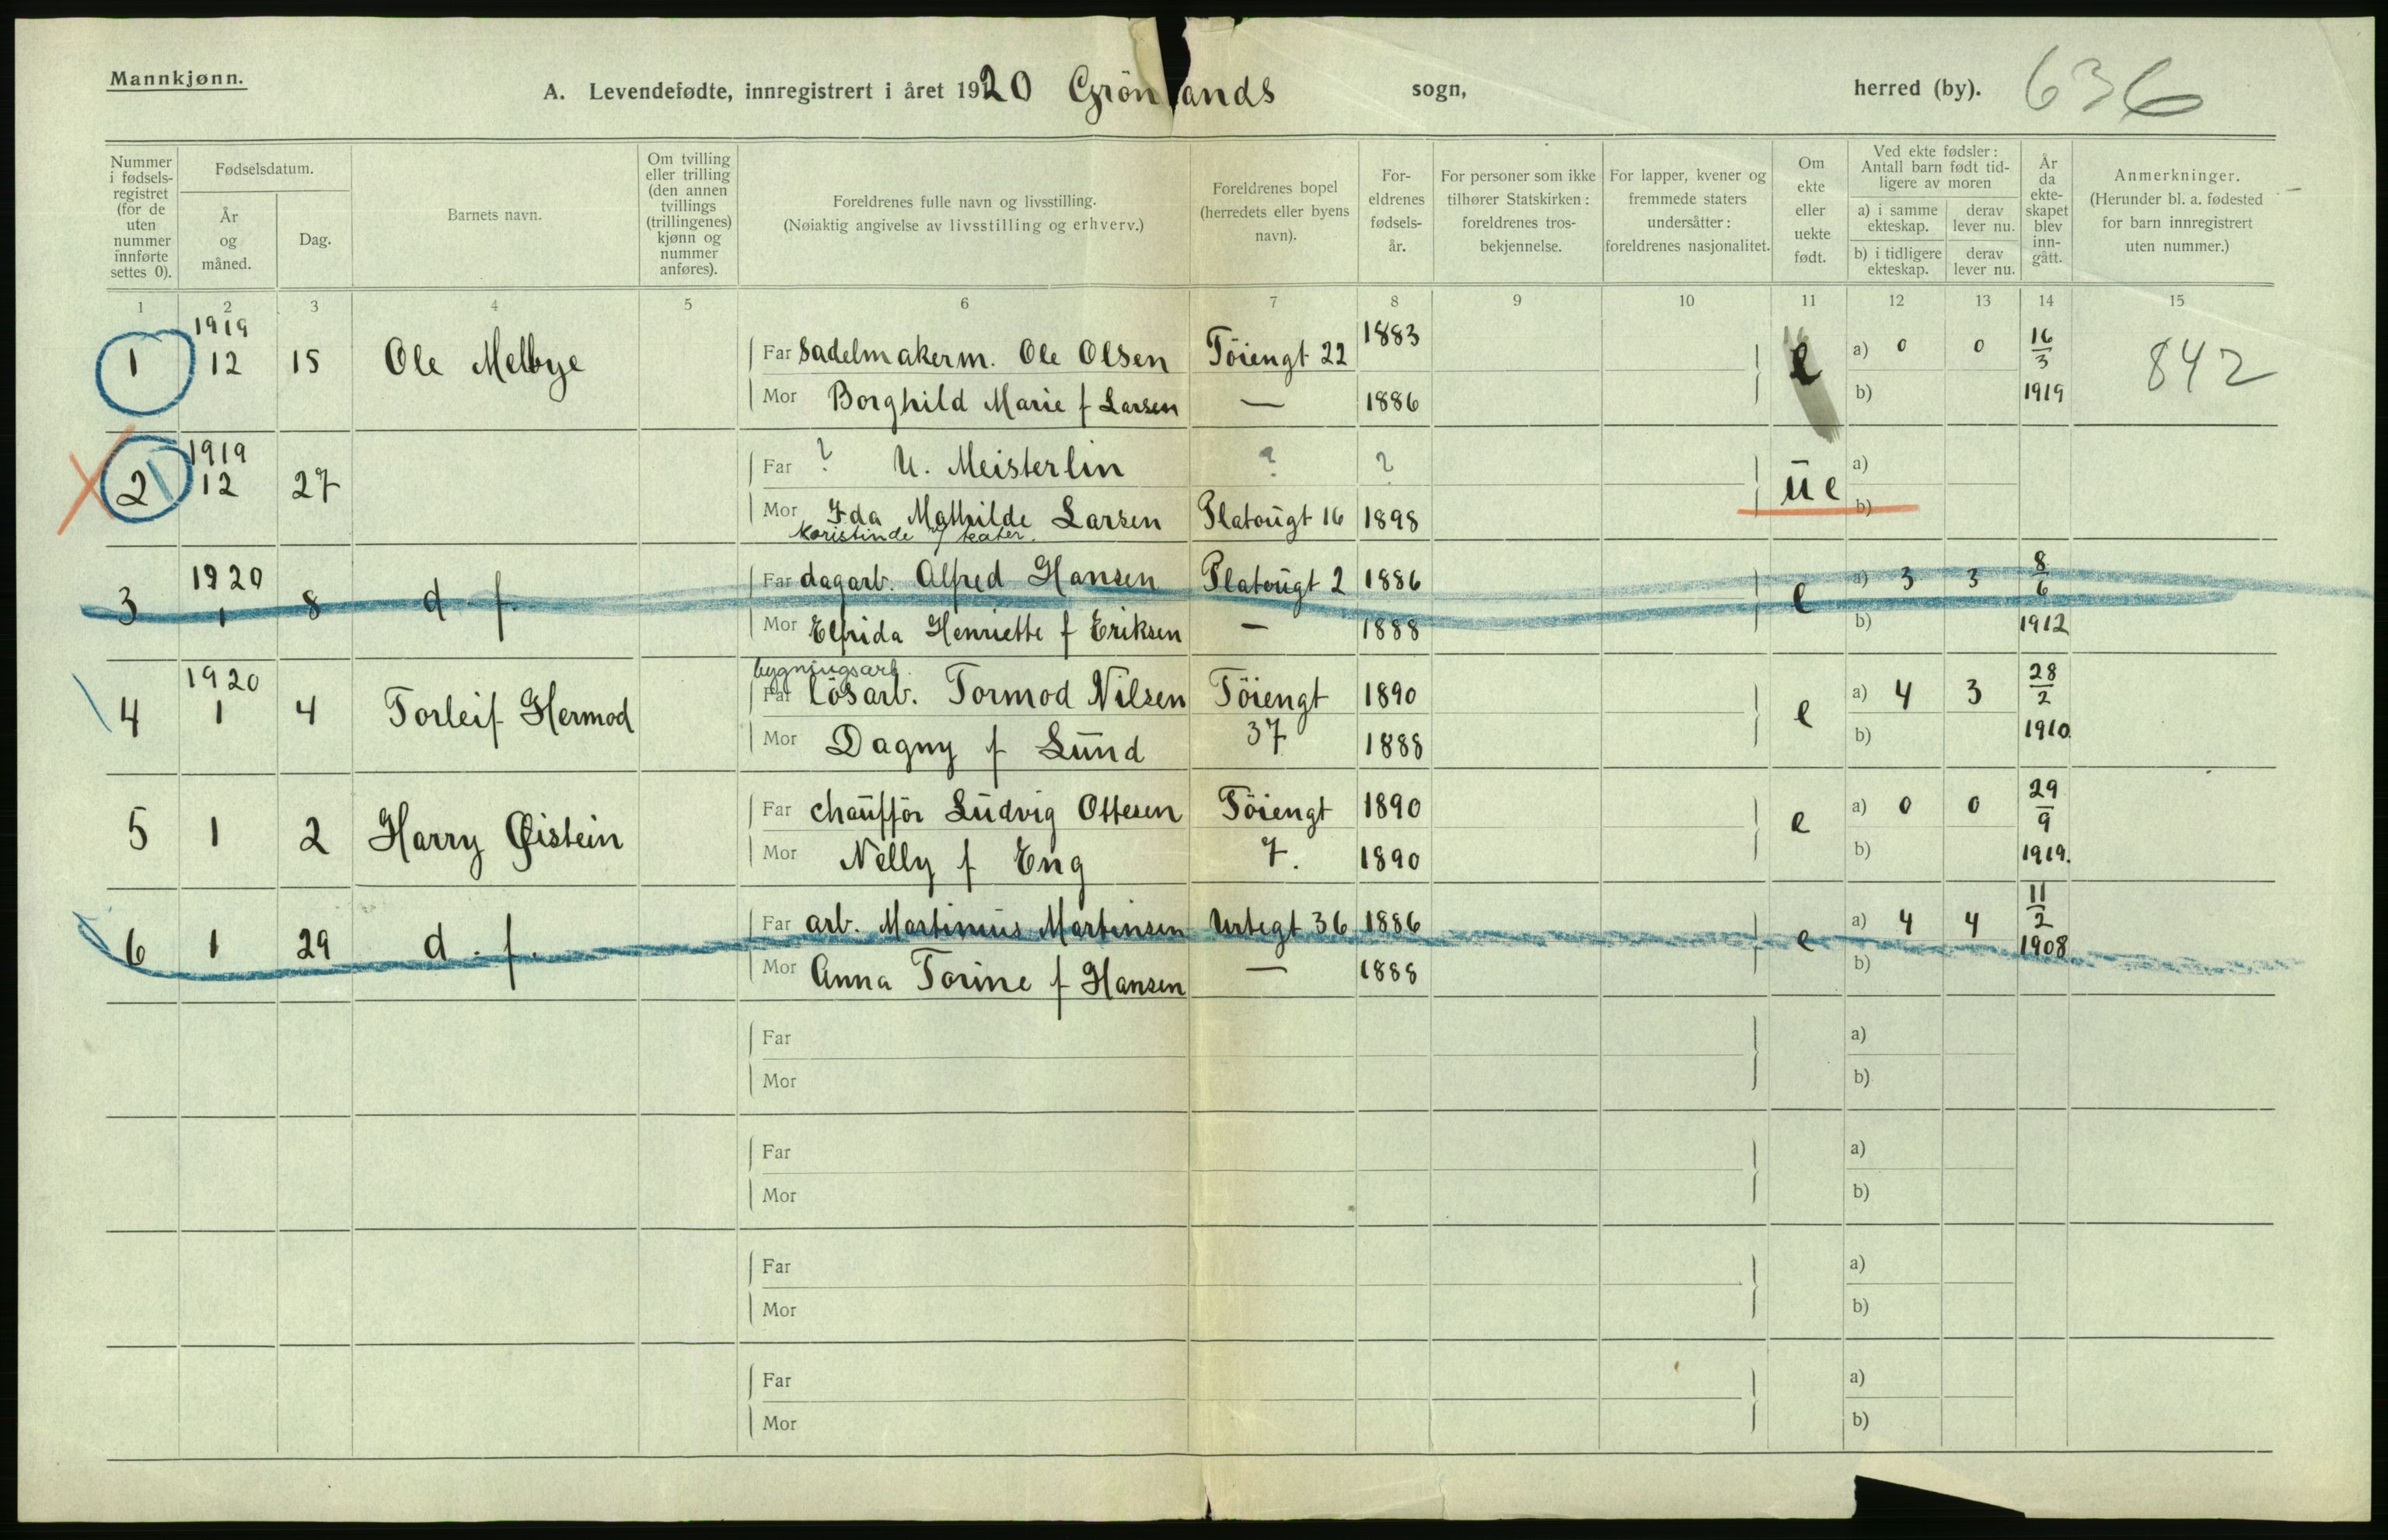 Mannkjønn.
A. Levendefødte, innregistrert i året 1920 Grönlands sogn, herred (by). 636
Nummer i fødsels-registret (for de uten nummer innførte settes 0).
Fødselsdatum.
År og måned.
Dag.
Barnets navn.
Om tvilling eller trilling (den annen tvillings (trillingenes) kjønn og nummer anføres).
Foreldrenes fulle navn og livsstilling.
(Nøiaktig angivelse av livsstilling og erhverv.)
Foreldrenes bopel (herredets eller byens navn).
For-eldrenes fødsels-år.
For personer som ikke tilhører Statskirken: foreldrenes tros-bekjennelse.
For lapper, kvener og fremmede staters undersåtter: foreldrenes nasjonalitet.
Om ekte eller uekte født.
Ved ekte fødsler: Antall barn født tid-ligere av moren
a) i samme ekteskap. derav lever nu.
b) i tidligere ekteskap. derav lever nu.
År da ekte-skapet blev inn-gått.
Anmerkninger.
(Herunder bl. a. fødested for barn innregistrert uten nummer.)
1 2 3 4 5 6 7 8 9 10 11 12 13 14 15
1 1919 12 15 Ole Melbye Far Sadelmakerm. Ole Olsen Töiengt 22 1883 e a) 0 0 16/3 1919 842
Mor Borghild Marie f Larsen — 1886 b)
2 1919 12 27 Far ? U. Meisterlin ? ? ue a)
Mor Ida Mathilde Larsen Platougt 16 1898 b)
Koristinde v/ teater.
3 1920 1 8 d. f. Far dagarb. Alfred Hansen Platougt 2 1886 e a) 3 3 8/6 1912
Mor Elfrida Henriette f Eriksen — 1888 b)
bygningsarb.
4 1920 1 4 Torleif Hermod Far lösarb. Tormod Nilsen Töiengt 1890 e a) 4 3 28/2 1910.
Mor Dagny f Lund 37 1888 b)
5 1 2 Harry Øistein Far chaufför Ludvig Ottesen Töiengt 1890 e a) 0 0 29/9 1919.
Mor Nelly f Eng 7. 1890 b)
6 1 29 d. f. Far arb. Martinius Martinsen Urtegt 36 1886 e a) 4 4 11/2 1908
Mor Anna Torine f Hansen — 1888 b)
Far a)
Mor b)
Far a)
Mor b)
Far a)
Mor b)
Far a)
Mor b)